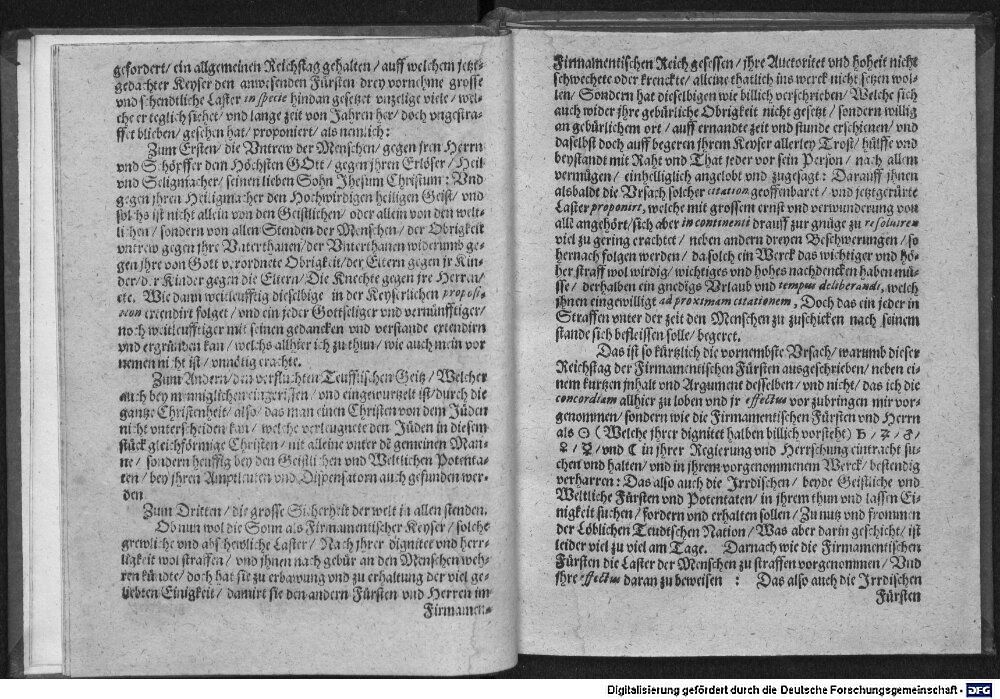 gefordert/ ein allgemeinen Reichstag gehalten/ auff welchem jetzt-
gedachter Keyser den anwesenden Fürsten drey vornehme grosse
vnd schendtliche Laster in specie hindan gesetzet vnzelige viele/ wel-
che er teglich siehet/ vnd lange zeit von Jahren her/ doch vngestra-
ffet blieben/ gesehen hat/ proponiert/ als nemlich:
Zum Ersten/ die Vntrew der Menschen/ gegen jren Herrn
vnd Schöpffer dem Höchsten GOtt/ gegen jhren Erlöser/ Heil
vnd Seligmacher/ seinen lieben Sohn Jhesum Christum: Vnd
gegen jhren Heiligmacher den Hochwirdigen heiligen Geist/ vnd
solchs ist nicht allein von den Geistlichen/ oder allein von den welt-
lichen/ sondern von allen Stenden der Menschen/ der Obrigkeit
vntrew gegen jhre Vnterthanen/ der Vnterthanen widerumb ge-
gen jhre von Gott verordnete Obrigkeit/ der Eltern gegen jr Kin-
der/ der Kinder gegen die Eltern/ Die Knechte gegen jre Herren/
etc. Wie dann weitleufftig dieselbige in der Keyserlichen proposi-
tion extendirt folget/ vnd ein jeder Gottseliger vnd vernünfftiger/
noch weitleufftiger mit seinen gedancken vnd verstande extendirn
vnd ergründen kan/ welchs allhier ich zu thun/ wie auch mein vor
nemen nicht ist/ vnnötig erachte.
Zum Andern/ den verfluchten Teufflischen Geitz/ Welcher
auch bey menniglichen eingerissen/ vnd eingewurtzelt ist/ durch die
gantze Christenheit/ also/ das man einen Christen von dem Jüden
nicht vnterscheiden kan/ welche verleugnete den Jüden in diesem
stück gleichförmige Christen/ nit alleine vnter dē gemeinen Man-
ne/ sondern heuffig bey den Geistlichen vnd Weltlichen Potenta-
ten/ bey jhren Amptleuten vnd Dispensatorn auch gefunden wer-
den
Zum Dritten/ die grosse Sicherheit der welt in allen stenden.
Ob nun wol die Sonn als Firmamentischer Keyser/ solche
grewliche vnd abschewliche Laster/ Nach jhrer dignitet vnd herr-
ligkeit wol straffen/ vnd jhnen nach gebür an den Menschen weh-
ren kündte/ doch hat sie zu erbawung vnd zu erhaltung der viel ge-
liebten Einigkeit/ damit sie den andern Fürsten vnd Herren im
Firmamen-
Firmamentischen Reich gesessen/ jhre Auctoritet vnd hoheit nicht
schwechete oder krenckte/ alleine thatlich ins werck nicht setzen wol-
len/ Sondern hat dieselbigen wie billich verschrieben/ Welche sich
auch wider jhre gebürliche Obrigkeit nicht gesetzt/ sondern willig
an gebürlichem ort/ auff ernandte zeit vnd stunde erschienen/ vnd
daselbst doch auff begeren jhrem Keyser allerley Trost/ hülffe vnd
beystandt mit Raht vnd That jeder vor sein Person/ nach allem
vermügen/ einhelliglich angelobt vnd zugesagt: Darauff jhnen
alsbaldt die Vrsach solcher citation geoffenbaret/ vnd jetztgerürte
Laster proponirt, welche mit grossem ernst vnd verwunderung von
allē angehört/ sich aber in continenti drauff zur gnüge zu resoluiren
viel zu gering erachtet/ neben andern dreyen Beschwerungen/ so
hernach folgen werden/ da solch ein Werck das wichtiger vnd hö-
her straff wol wirdig/ wichtiges vnd hohes nachdencken haben mü-
sse/ derhalben ein gnedigs Vrlaub vnd tempus deliberandi, welch
jhnen eingewilligt ad proximam citationem, Doch das ein jeder in
Straffen vnter der zeit den Menschen zu zuschicken nach seinem
stande sich befleissen solle/ begeret.
Das ist so kürtzlich die vornembste Vrsach/ warumb dieser
Reichstag der Firmamentischen Fürsten ausgeschrieben/ neben ei-
nem kurtzen jnhalt vnd Argument desselben/ vnd nicht/ das ich die
concordiam allhier zu loben vnd jr effectus vor zubringen mir vor-
genommen/ sondern wie die Firmamentischen Fürsten vnd Herrn
als ☉ (Welche jhrer dignitet halben billich vorsteht) ♄/ ♃/ ♂/
♀/ ☿/ vnd ☾ in jhrer Regierung vnd Herrschung eintracht su-
chen vnd halten/ vnd in jhrem vorgenommenem Werck/ bestendig
verharren: Das also auch die Irrdischen/ beyde Geistliche vnd
Weltliche Fürsten vnd Potentaten/ in jhrem thun vnd lassen Ei-
nigkeit suchen/ fordern vnd erhalten sollen/ Zu nutz vnd frommen
der Löblichen Teudtschen Nation/ Was aber darin geschicht/ ist
leider viel zu viel am Tage. Darnach wie die Firmamentischen
Fürsten die Laster der Menschen zu straffen vorgenommen/ Vnd
jhre effectus daran zu beweisen : Das also auch die Irrdischen
Fürsten
Digitalisierung gefördert durch die Deutsche Forschungsgemeinschaft - DFG